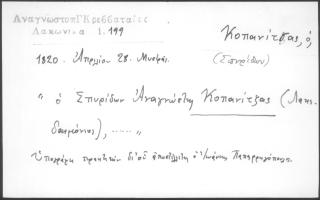 Αναγνωστοπ Γ Κρεββαταίες
Λακωνικά 1.199
Κοπανίτζας, ὁ,
(Σπυρίδων)
1820. Ἀπριλίου 28.
" ὁ Σπυρίδων Ἀναγνώστη Κοπανίτζας (Λακε-
δαιμόνιος), ...... "
Ὑπογράφει πρακτικόν δι' οὗ ἀποστέλλεται ὁ Ἰωάννης Παπαρρηγόπουλος.